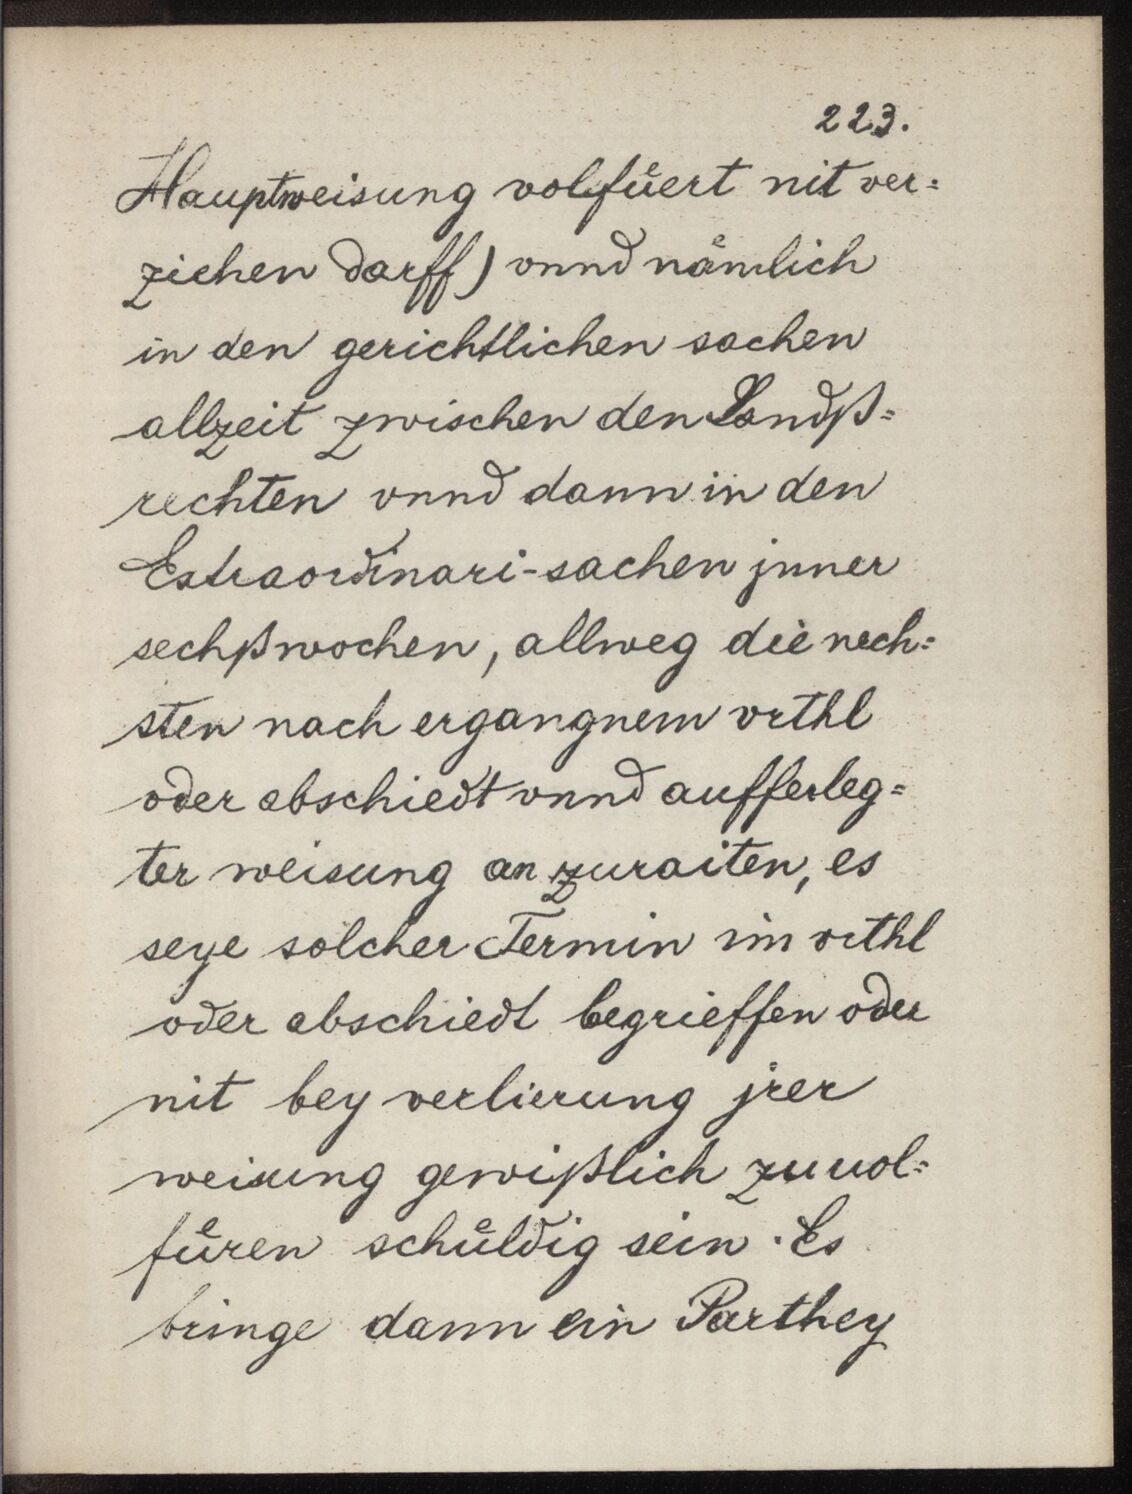 223.
Hauptweisung volfuͤert nit ver=
ziehen darff) vnnd naͤmlich
in den gerichtlichen sachen
allzeit zwischen den Landß=
rechten vnnd dann in den
Estraordinari-sachen jnner
sechßwochen, allweg die nech=
sten nach ergangnem vrthl
oder abschiedt vnnd aufferleg=
ter weisung anzuraiten, es
seye solcher Termin im vrthl
oder abschiedt begrieffen oder
nit bey verlierung jrer
weisung gewißlich zuuol=
fuͤren schuͤldig sein. Es
bringe dann ein Parthey